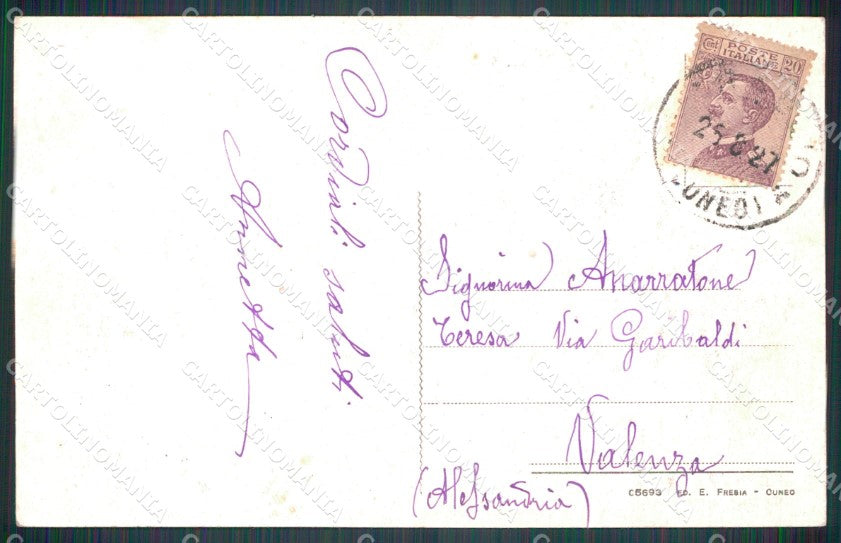 Cordiali saluti
Annetta
POSTE
ITALIANE
Cent 20
25.8.27
Signorina Anarratone
Teresa Via Garibaldi
Valenza
(Alessandria)
C5693 ED. E. FRESIA - CUNEO
CARTOLINOMANIA